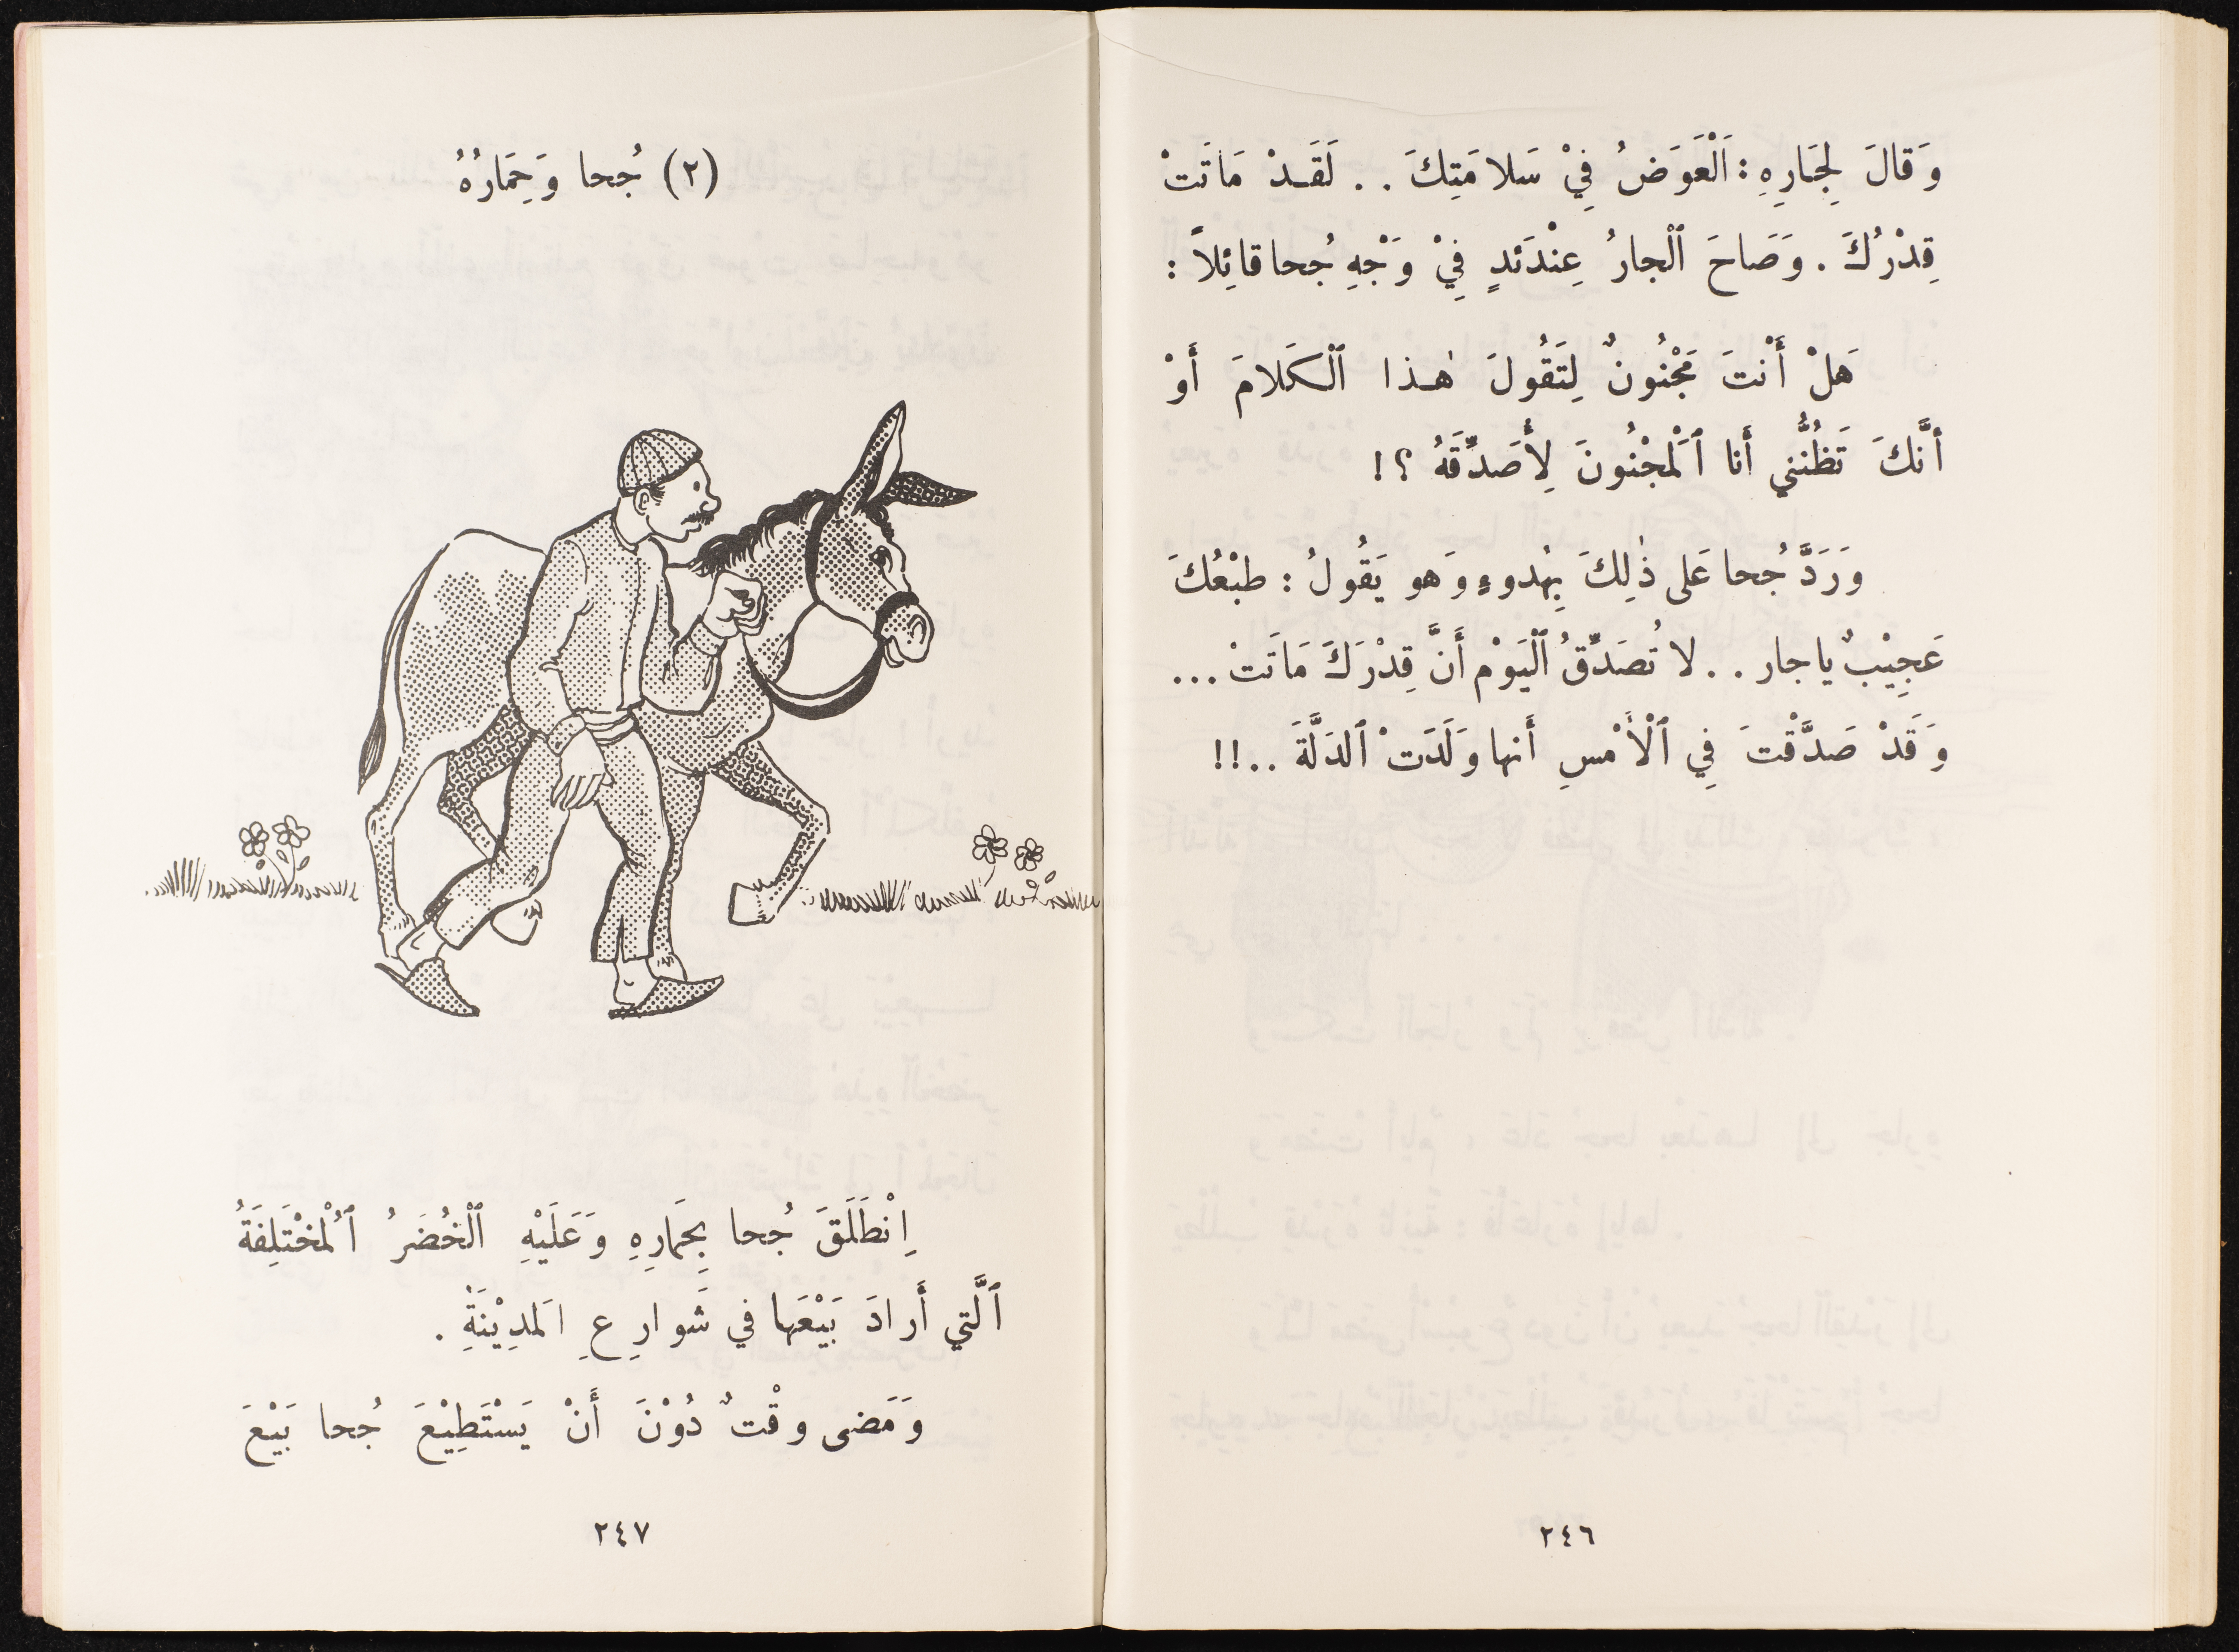 وَقالَ لِجَارِهِ : اَلْعَوَضُ فِيْ سَلامَتِكَ . . لَقَـدْ مَاتَتْ
قِدْرُكَ . وَصَاحَ ٱلْجارُ عِنْدَئدٍ فِيْ وَجْهِ جُحا قائِلاً :
هَلْ أَنْتَ مَجْنُونٌ لِتَقُولَ هٰـذا ٱلْكَلامَ أَوْ
أنَّكَ تَظُنُّني أَنا ٱلْمجْنُونَ لِأُصَدِّقَهُ ؟ !
وَرَدَّ جُحا عَلى ذٰلِكَ بِهُدوءٍ وَهو يَقُولُ : طبْعُكَ
عَجِيْبٌ يا جار . . لا تُصَدِّقُ ٱلْيَوْم أَنَّ قِدْرَكَ مَاتَتْ ...
وَقَدْ صَدَّقْتَ فِي ٱلْأَمْسِ أَنها وَلَدَتْ ٱلدَلَّةَ . . ! !
٢٤٦
(٢) جُحا وَحِمَارُهُ
اِنْطَلَقَ جُحا بِحَمارِهِ وَعَلَيْهِ ٱلْخُضَرُ ٱلْمُخْتَلِفَةُ
ٱلَّتي أَرادَ بَيْعَها في شَوارِعِ المَدِيْنَةِ .
وَمَضى وقْتٌ دُوْنَ أَنْ يَسْتَطِيْعَ جُحا بَيْعَ
٢٤٧